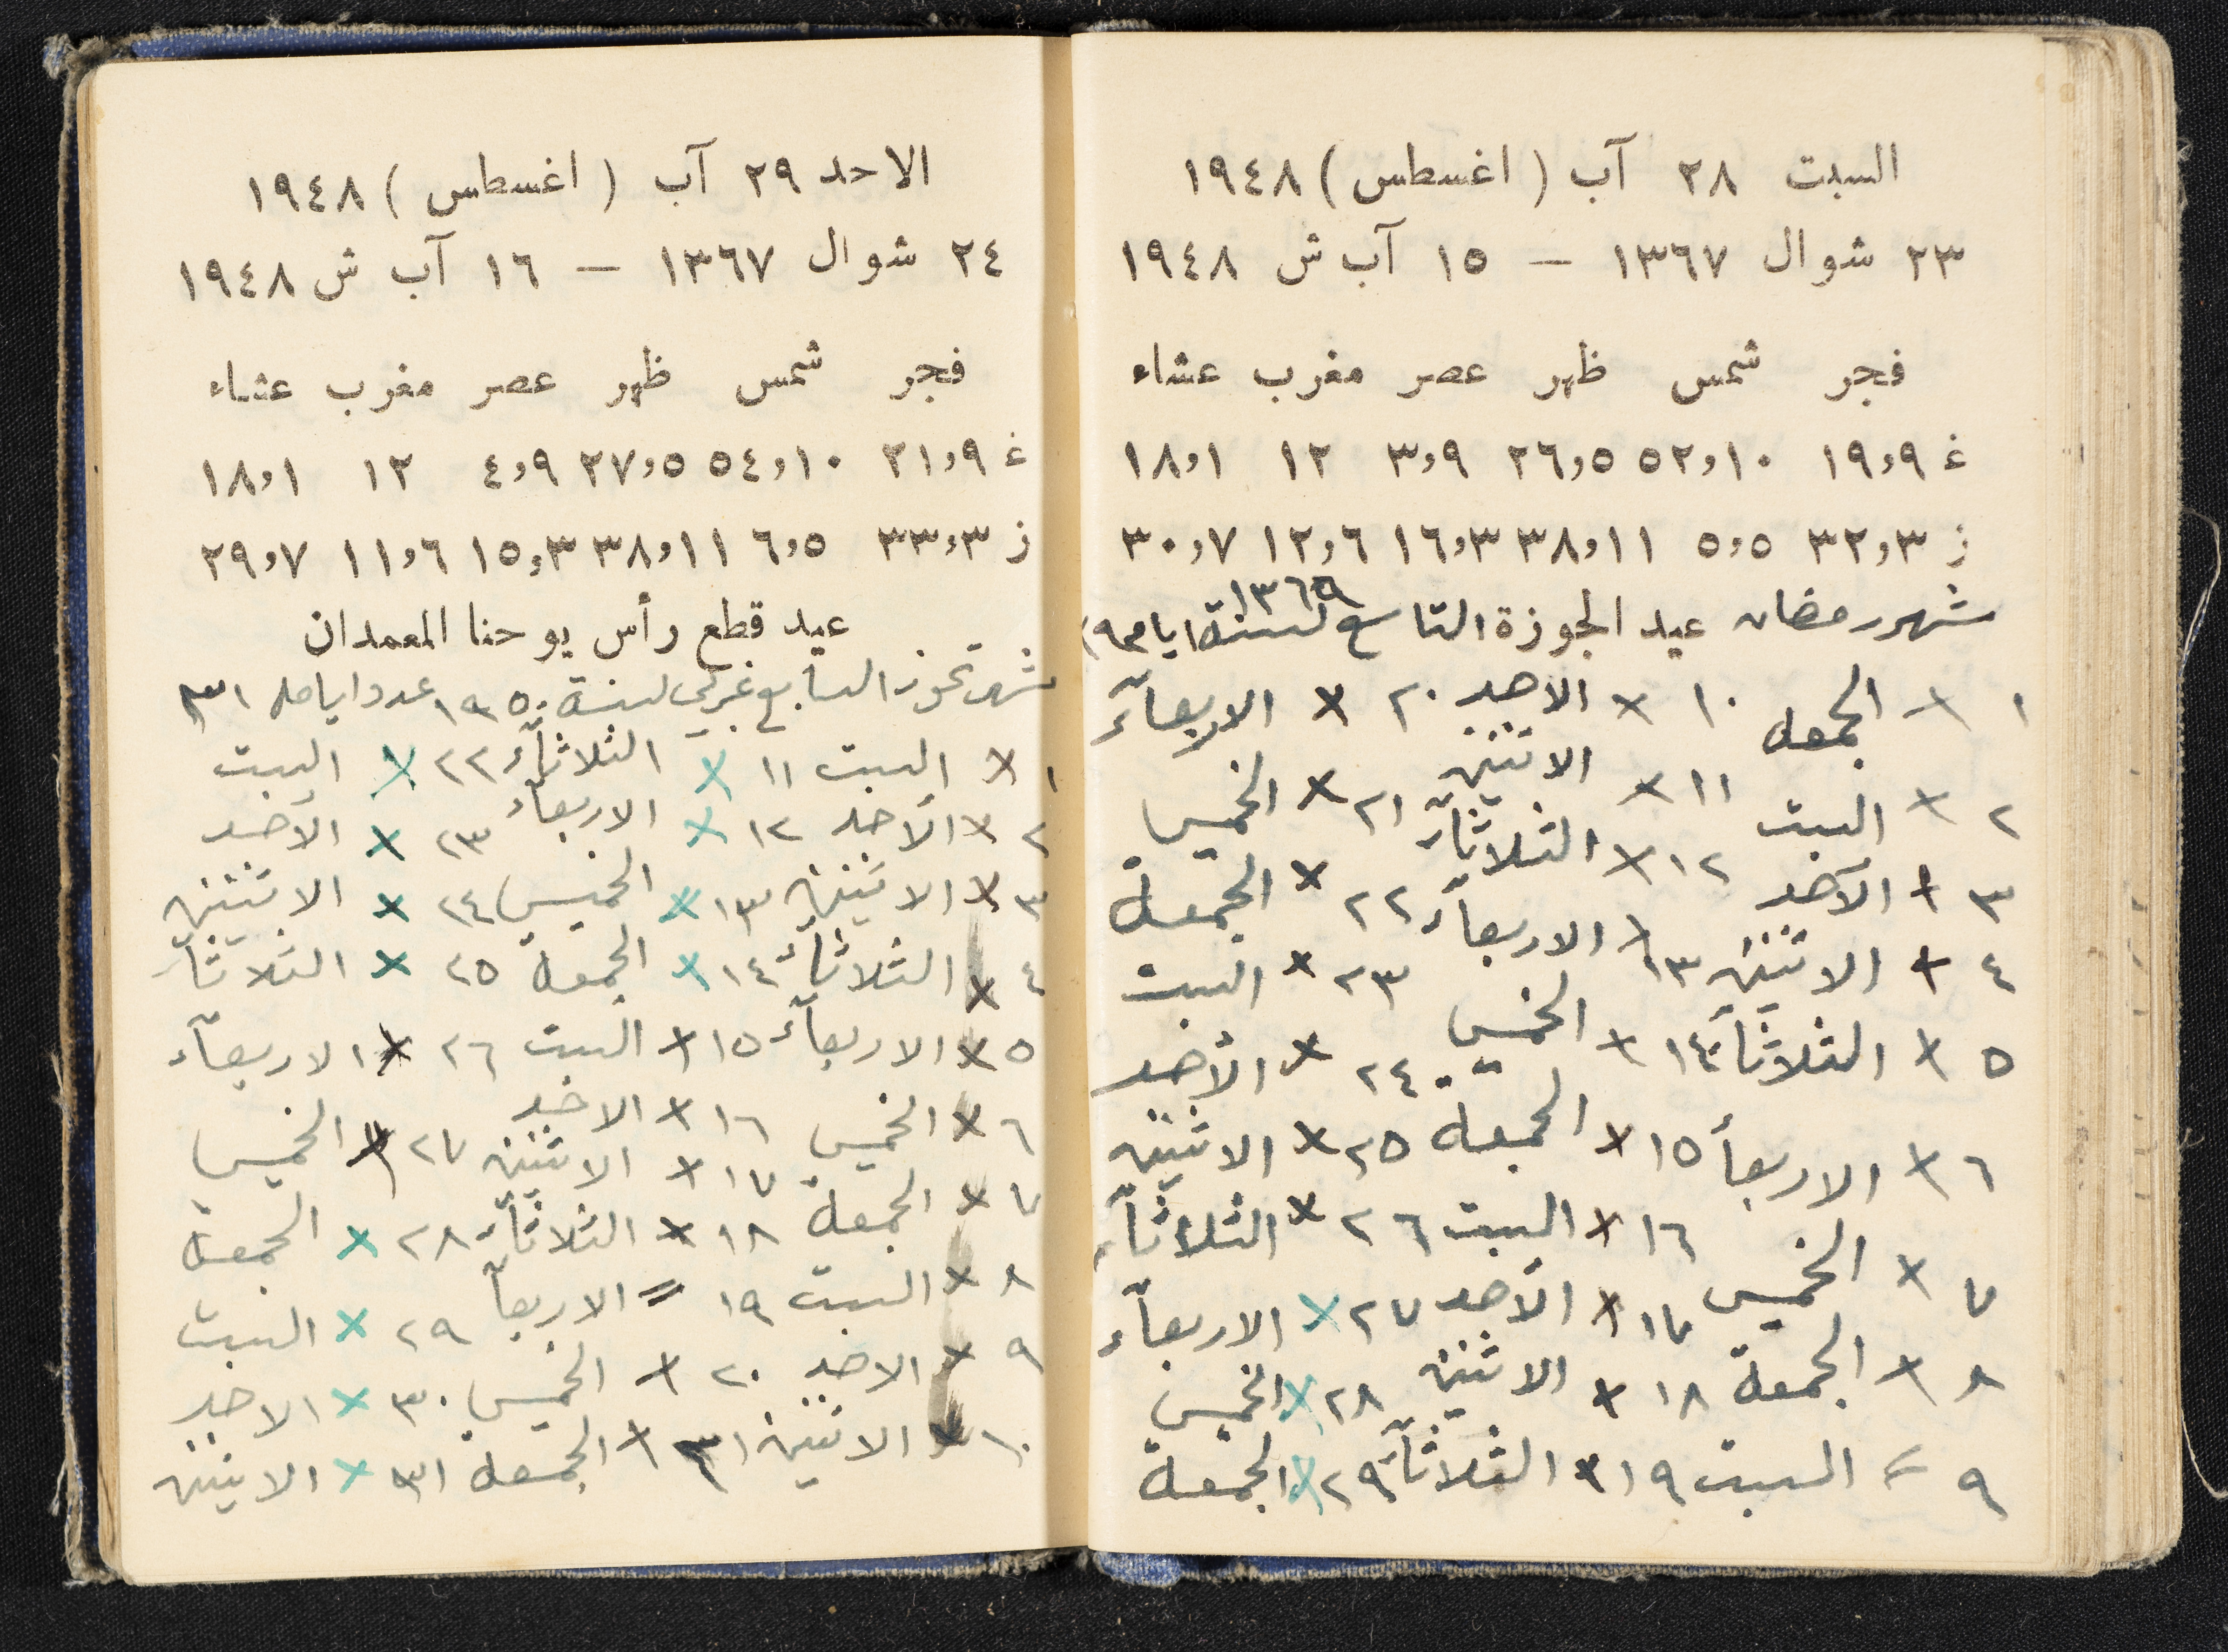 السبت ٢٨ آب ( اغسطس ) ١٩٤٨
٢٣ شوال ١٣٦٧ — ١٥ آب ش ١٩٤٨
فجر شمس ظهر عصر مغرب عشاء
غ ١٩,٩ ٥٢,١٠ ٢٦,٥ ٣,٩ ١٢ ١٨,١
ز ٣٢,٣ ٥,٥ ٣٨,١١ ١٦,٣ ١٢,٦ ٣٠,٧
١٣٦٩
شهر رمضان عيد الجوزة التاسع لسنة ايامه ٢٩
١ × الجمعه ١٠ × الاحد ٢٠ × الاربعآء
٢ × السبت ١١ × الاثنين ٢١ × الخميس
٣ × الأحد ١٢ × الثلاثآء ٢٢ × الجمعة
٤ × الاثنين ١٣ × الاربعآء ٢٣ × السبت
٥ × الثلاثآء ١٤ × الخميس ٢٤ × الأحد
٦ × الاربعأ ١٥ × الجمعة ٢٥ × الاثنين
٧ × الخميس ١٦ × السبت ٢٦ × الثلاثآء
٨ × الجمعة ١٧ × الأحد ٢٧ × الاربعآء
٩ = السبت ١٨ × الاثنين ٢٨ × الخميس
١٩ × الثلاثآء ٢٩ × الجمعة
الاحد ٢٩ آب ( اغسطس ) ١٩٤٨
٢٤ شوال ١٣٦٧ — ١٦ آب ش ١٩٤٨
فجر شمس ظهر عصر مغرب عشاء
غ ٢١,٩ ٥٤,١٠ ٢٧,٥ ٤,٩ ١٢ ١٨,١
ز ٣٣,٣ ٦,٥ ٣٨,١١ ١٥,٣ ١١,٦ ٢٩,٧
عيد قطع رأس يوحنا المعمدان
شهر تموز السابع غربي لسنة ١٩٥٠ عدد ايامه ٣١
١ × السبت ١١ × الثلاثآء ٢٢ × السبت
٢ × الأحد ١٢ × الاربعآء ٢٣ × الأحد
٣ × الاثنين ١٣ × الخميس ٢٤ × الاثنين
٤ × الثلاثآء ١٤ × الجمعة ٢٥ × الثلاثآء
٥ × الاربعآء ١٥ × السبت ٢٦ × الاربعآء
٦ × الخميس ١٦ × الاحد ٢٧ × الخميس
٧ × الجمعة ١٧ × الاثنين ٢٨ × الجمعة
٨ × السبت ١٨ × الثلاثآء ٢٩ × السبت
٩ × الاحد ١٩ = الاربعآ ٣٠ × الاحد
١٠ × الاثنين ٢٠ × الخميس ٣١ × الاثنين
٢١ × الجمعة